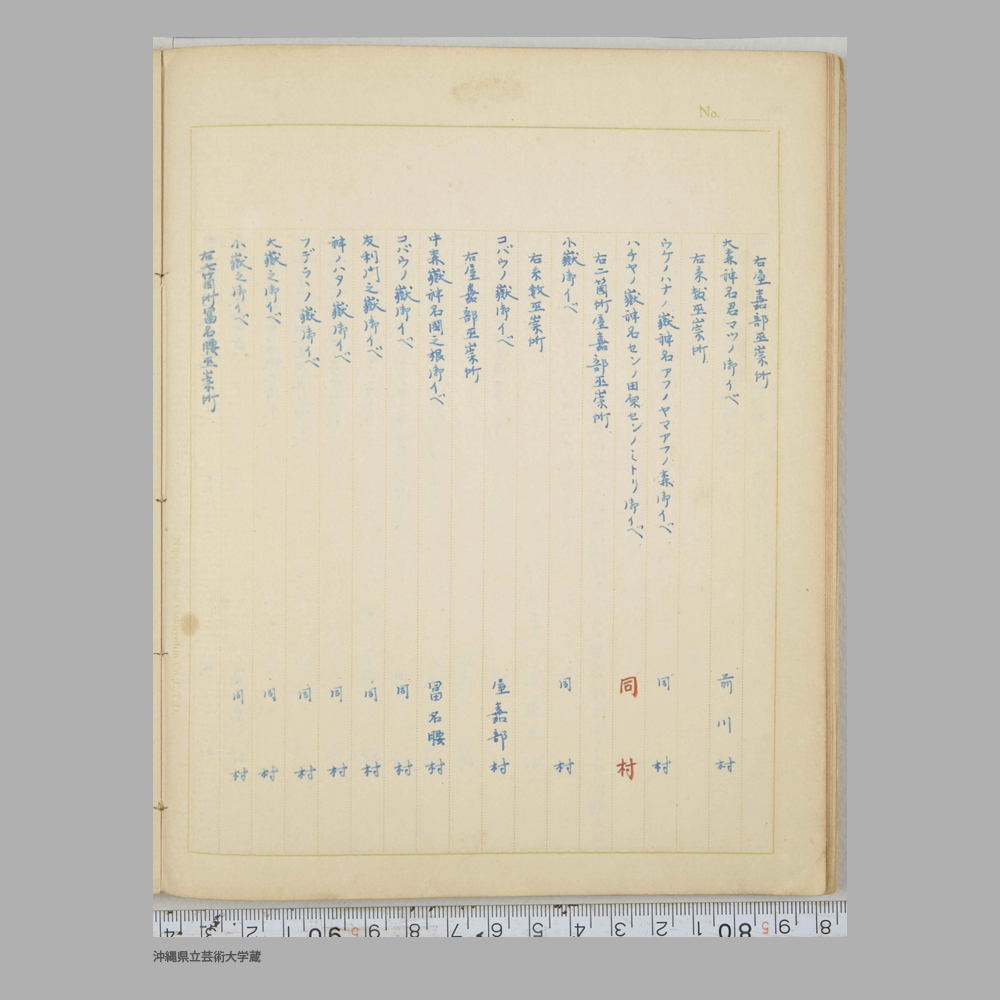 No.
右屋嘉部巫崇所
大森神名君マツノ御イベ 前川村
右糸数巫崇所
ウケノハナノ嶽神名アフノヤマアフノ森御イベ 同村
ハチヤノ嶽神名センノ田梁センノミトリ御イベ 同村
右二箇所屋嘉部巫崇所
小嶽御イベ 同村
右糸数巫崇所
コバウノ嶽御イベ 屋嘉部村
右屋嘉部巫崇所
中森嶽神名国之根御イベ 冨名腰村
コバウノ嶽御イベ 同村
友利門之嶽御イベ 同村
神ノハタノ嶽御イベ 同村
フデラノ嶽御イベ 同村
大嶽之御イベ 同村
小嶽之御イベ 同村
右七箇所冨名腰巫崇所
沖縄県立芸術大学蔵